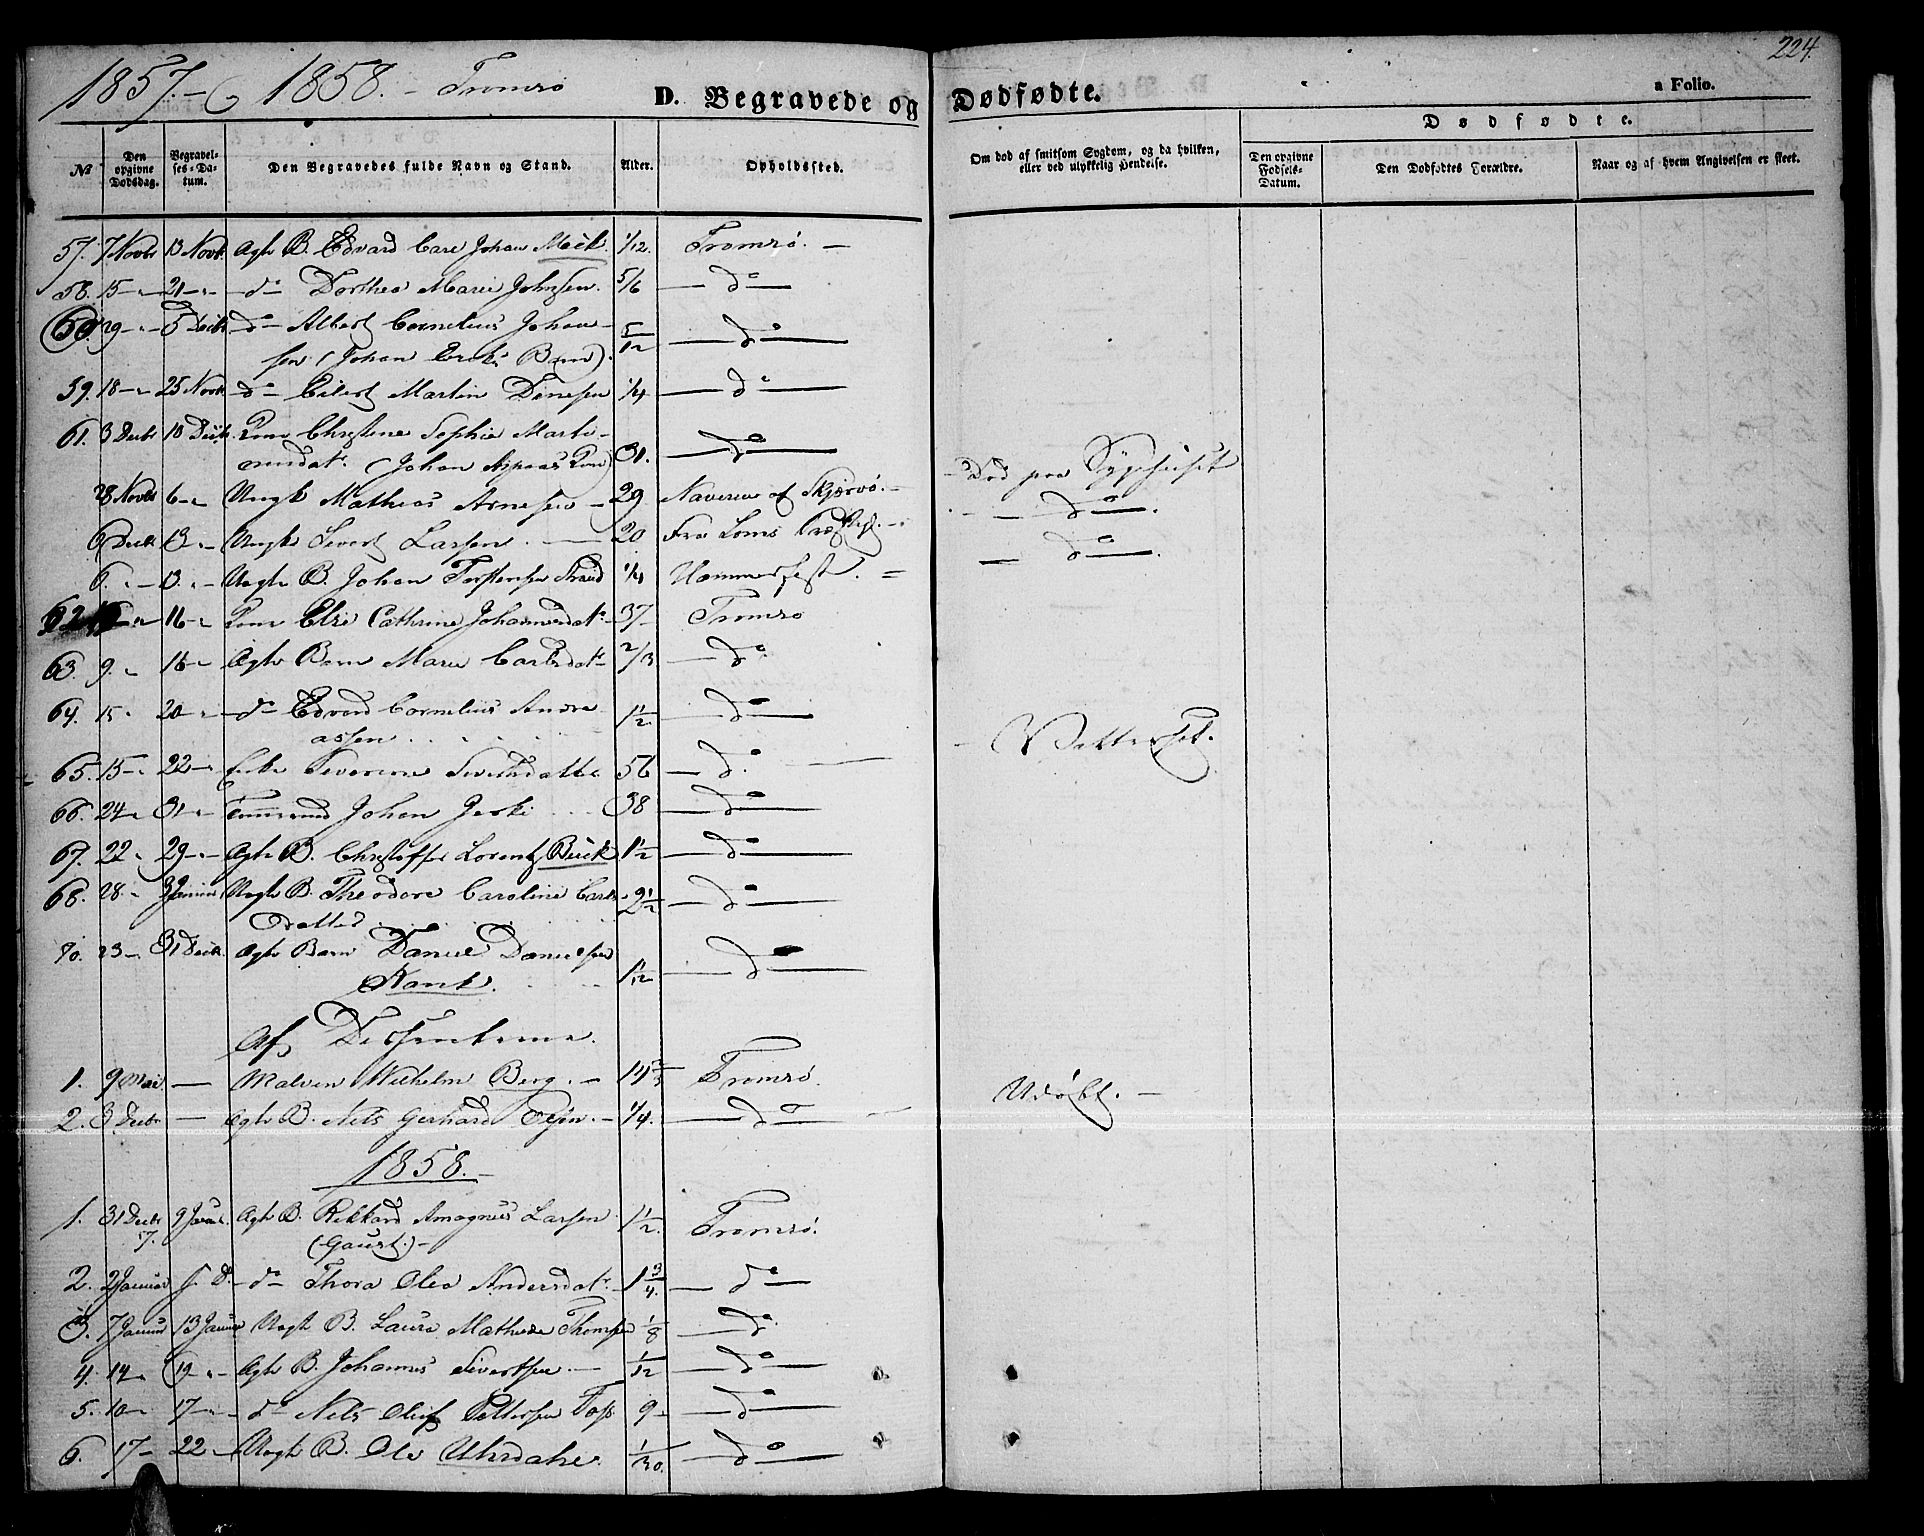 224.
1857. - 1858. - Tromsø
D. Begravede og Dødfødte.
a Folio.
No
Den opgivne Dødsdag.
Begravelses-Datum.
Den Begravedes fulde Navn og Stand.
Alder.
Opholdssted.
Om død af smitsom Sygdom, og da hvilken, eller ved ulykkelig Hendelse.
Dødfødte.
Den opgivne Fødsels-Datum.
Den Dødfødtes Forældre.
Naar og af hvem Angivelsen er skeet.
57. 7 Novbr 13 Novbr Ægte B. Edvard Carl Johan Mack 1/12. Tromsø. -
58. 15 - " - 21 - " - do Dorthea Marie Johnsen. 5/6 - do -
60. 29 - " - 5 Decbr do - Albert Cornelius Johan- 5/12 - do -
sen (Johan Barn).
59. 18 - " 25 Novbr do - Eilert Martin 1/4 - do -
61. 3 Decbr 10 Decbr Christine Sophie Marti- 31. - do -
nusdatr. (Johan
28 Novbr 6 - " Ungk Mathias Arnesen - 29 af Skjærvø. - - Død paa Sygehuset
6 Decbr 13. " - Ungk Sivert Larsen. 20 Fra Loms Præstgd. - - do -.
6. " - 13. " - Uægte B. Johan Torstensen 1/4 Hammerfest. = - do -.
62 16 - " Else Cathrine Johannesdatr 37 - Tromsø
63. 9. " 16 - " Ægte Barn Marie Carlsdatr 2/3 - do
64. 15 " 20 - " - do Edvard Cornelius Andre- 1 1/2 - do -
assen
65. 15 - " 22 - " Enke Severine Sivertsdatter 56 - do. - Vattersot.
66. 24 - " 31 - " - Tømmermd Johan 38 - do -
67. 22 " 29 - " - Ægte B. Christoffer Lorentz Buck 1 1/2 - do -
68. 28 - " 3 Januar Uægte B. Theodora Caroline Carls- 2 1/2 - do -
datter
70. 23 - " 31 Decbr. Ægte Barn Daniel Danielsen - do -
Af Dissenterne.
1. 9 Mai - Malvin Wilhelm Berg. - Tromsø.
2. 3 Decbr - Ægte B. Nils Gerhard - 1/4. - do - Udøbt. -
1858. -
1. 31 Decbr 57. 9 Januar. Ægte B. Rikkard Amagnus Larsen 1 1/2. Tromsø.
(Gaust.) -
2. 2 Januar - do Thora Olea Andersdatr. 1 3/4. - do -
3. 7 Januar 13 Januar Uægte B. Laura Mathilde Thomsen 1/8 - do
4. 14 - " 19 - " - Ægte B. Johannes Sivertsen. - 1/12 - do -
5. 10 - " 17 - " - do Nils Oluf Pettersen Foss 9 - - do -
6. 17 - 22 - Uægte B. Ole Uhrdahl. 1/30. - do -